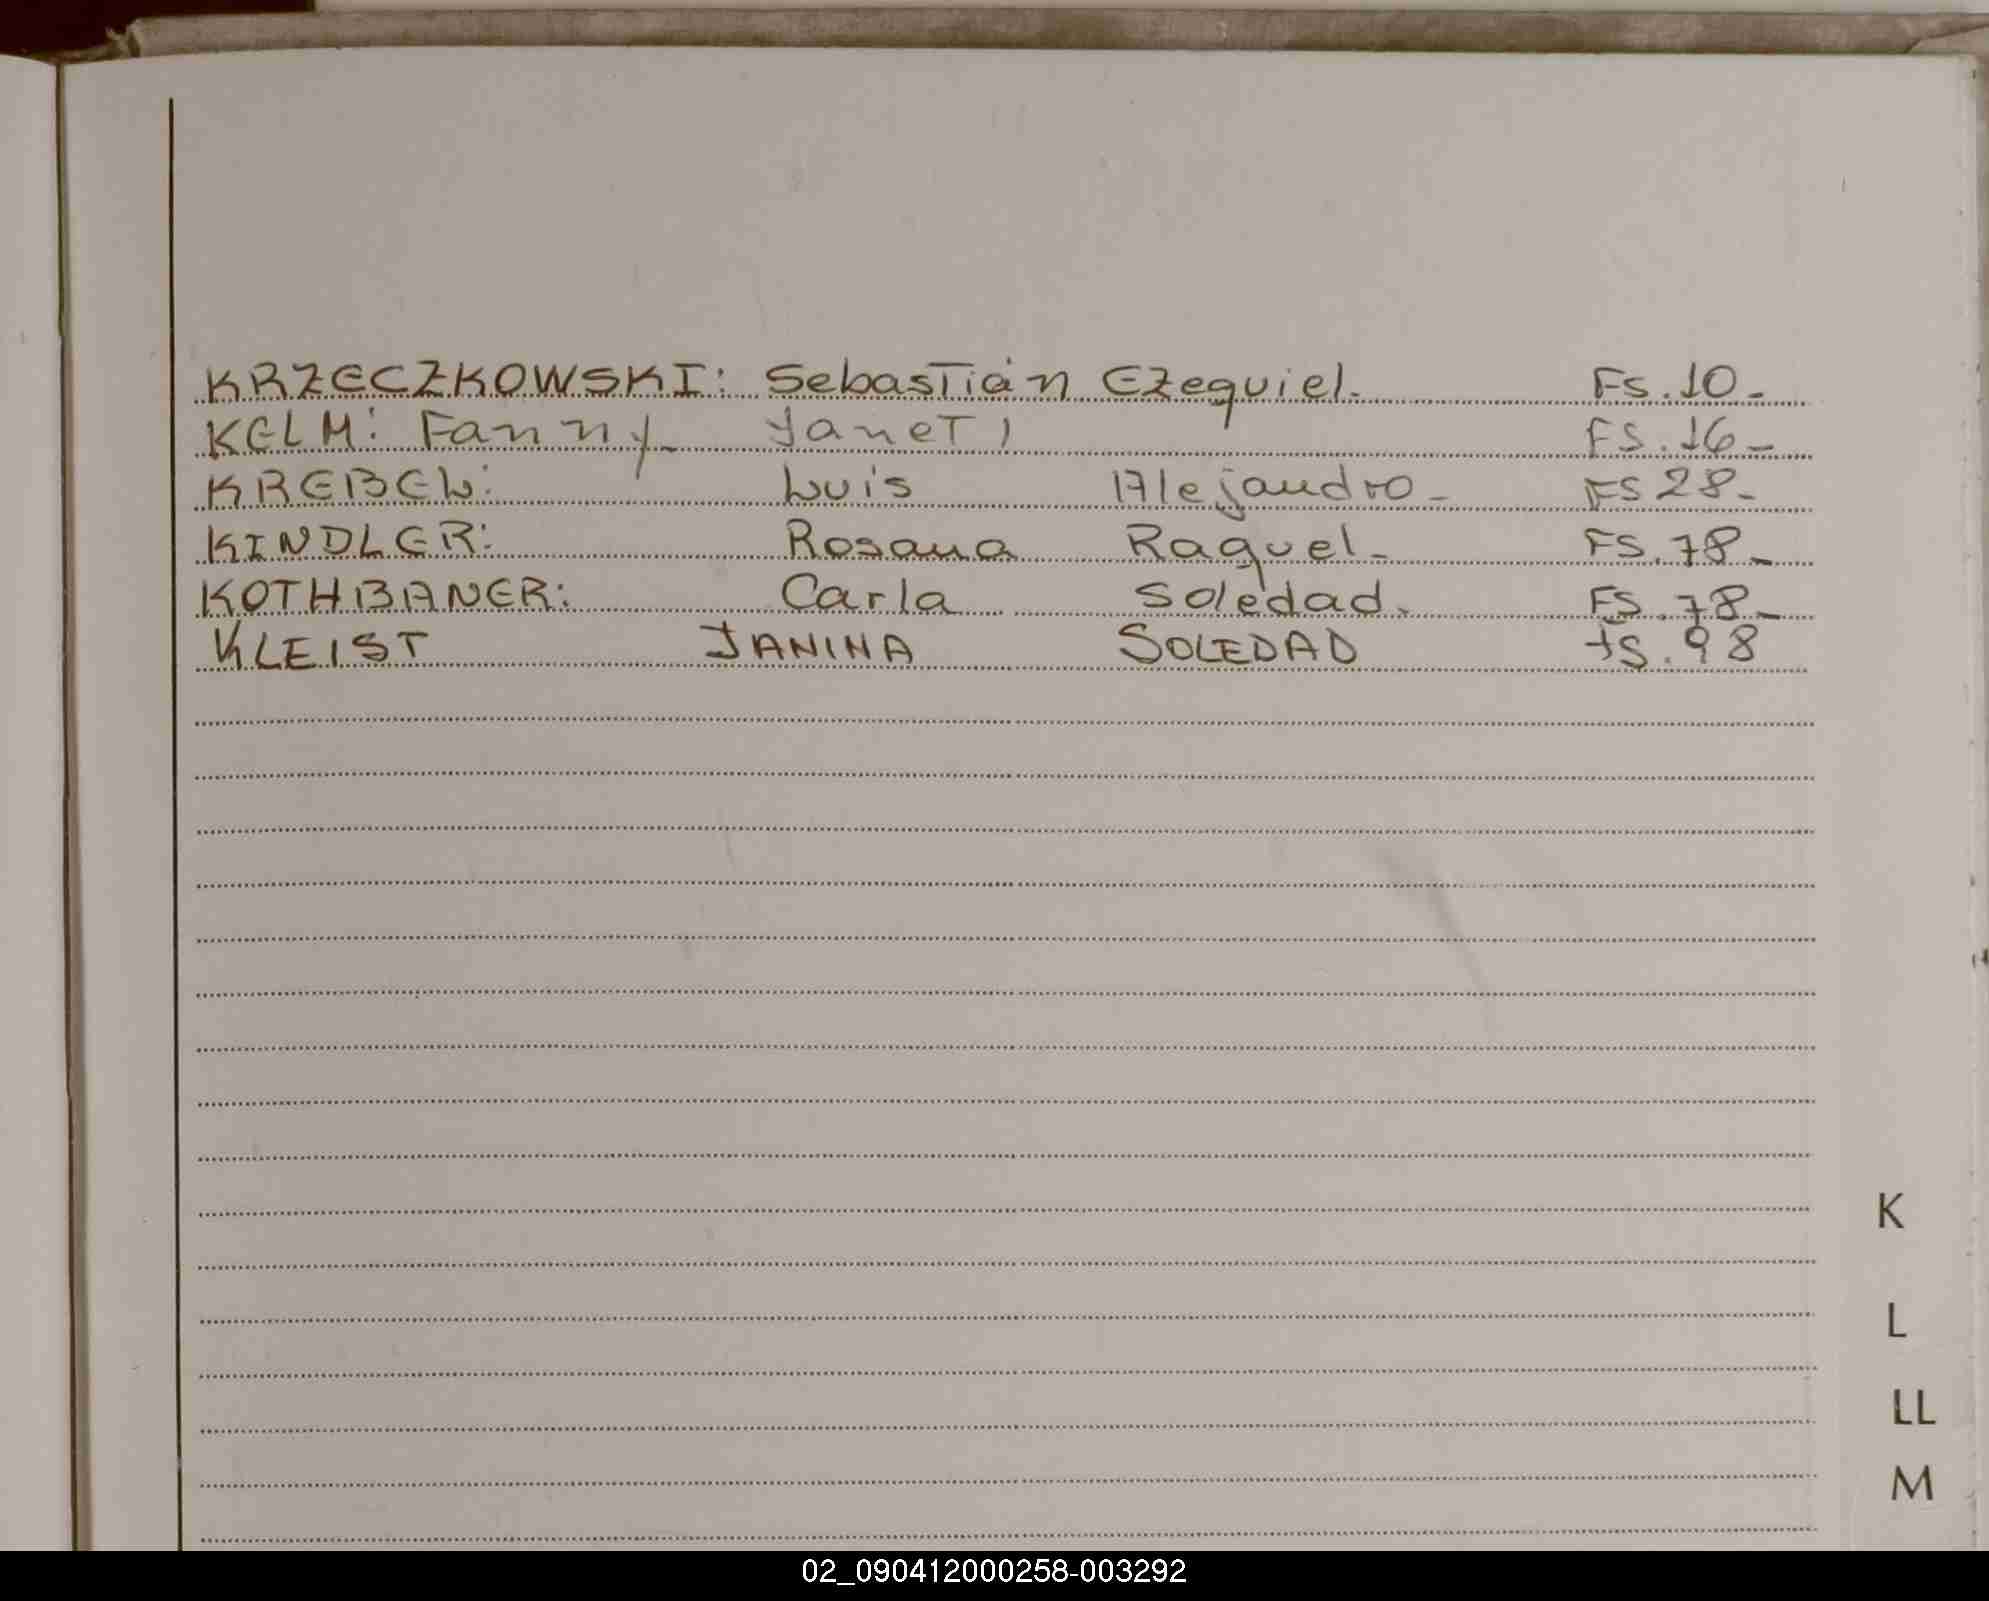 KRZECZKOWSKI: Sebastián Ezequiel. Fs. 10_
KELM: Fanny_ Janet, Fs. 16_
KREBEL: Luis Alejandro_ Fs 28_
KINDLER: Rosana Raquel_ Fs. 78_
KOTHBANER: Carla Soledad. Fs. 78_
KLEIST JANINA SOLEDAD fs. 98
K
L
LL
M
02_090412000258-003292